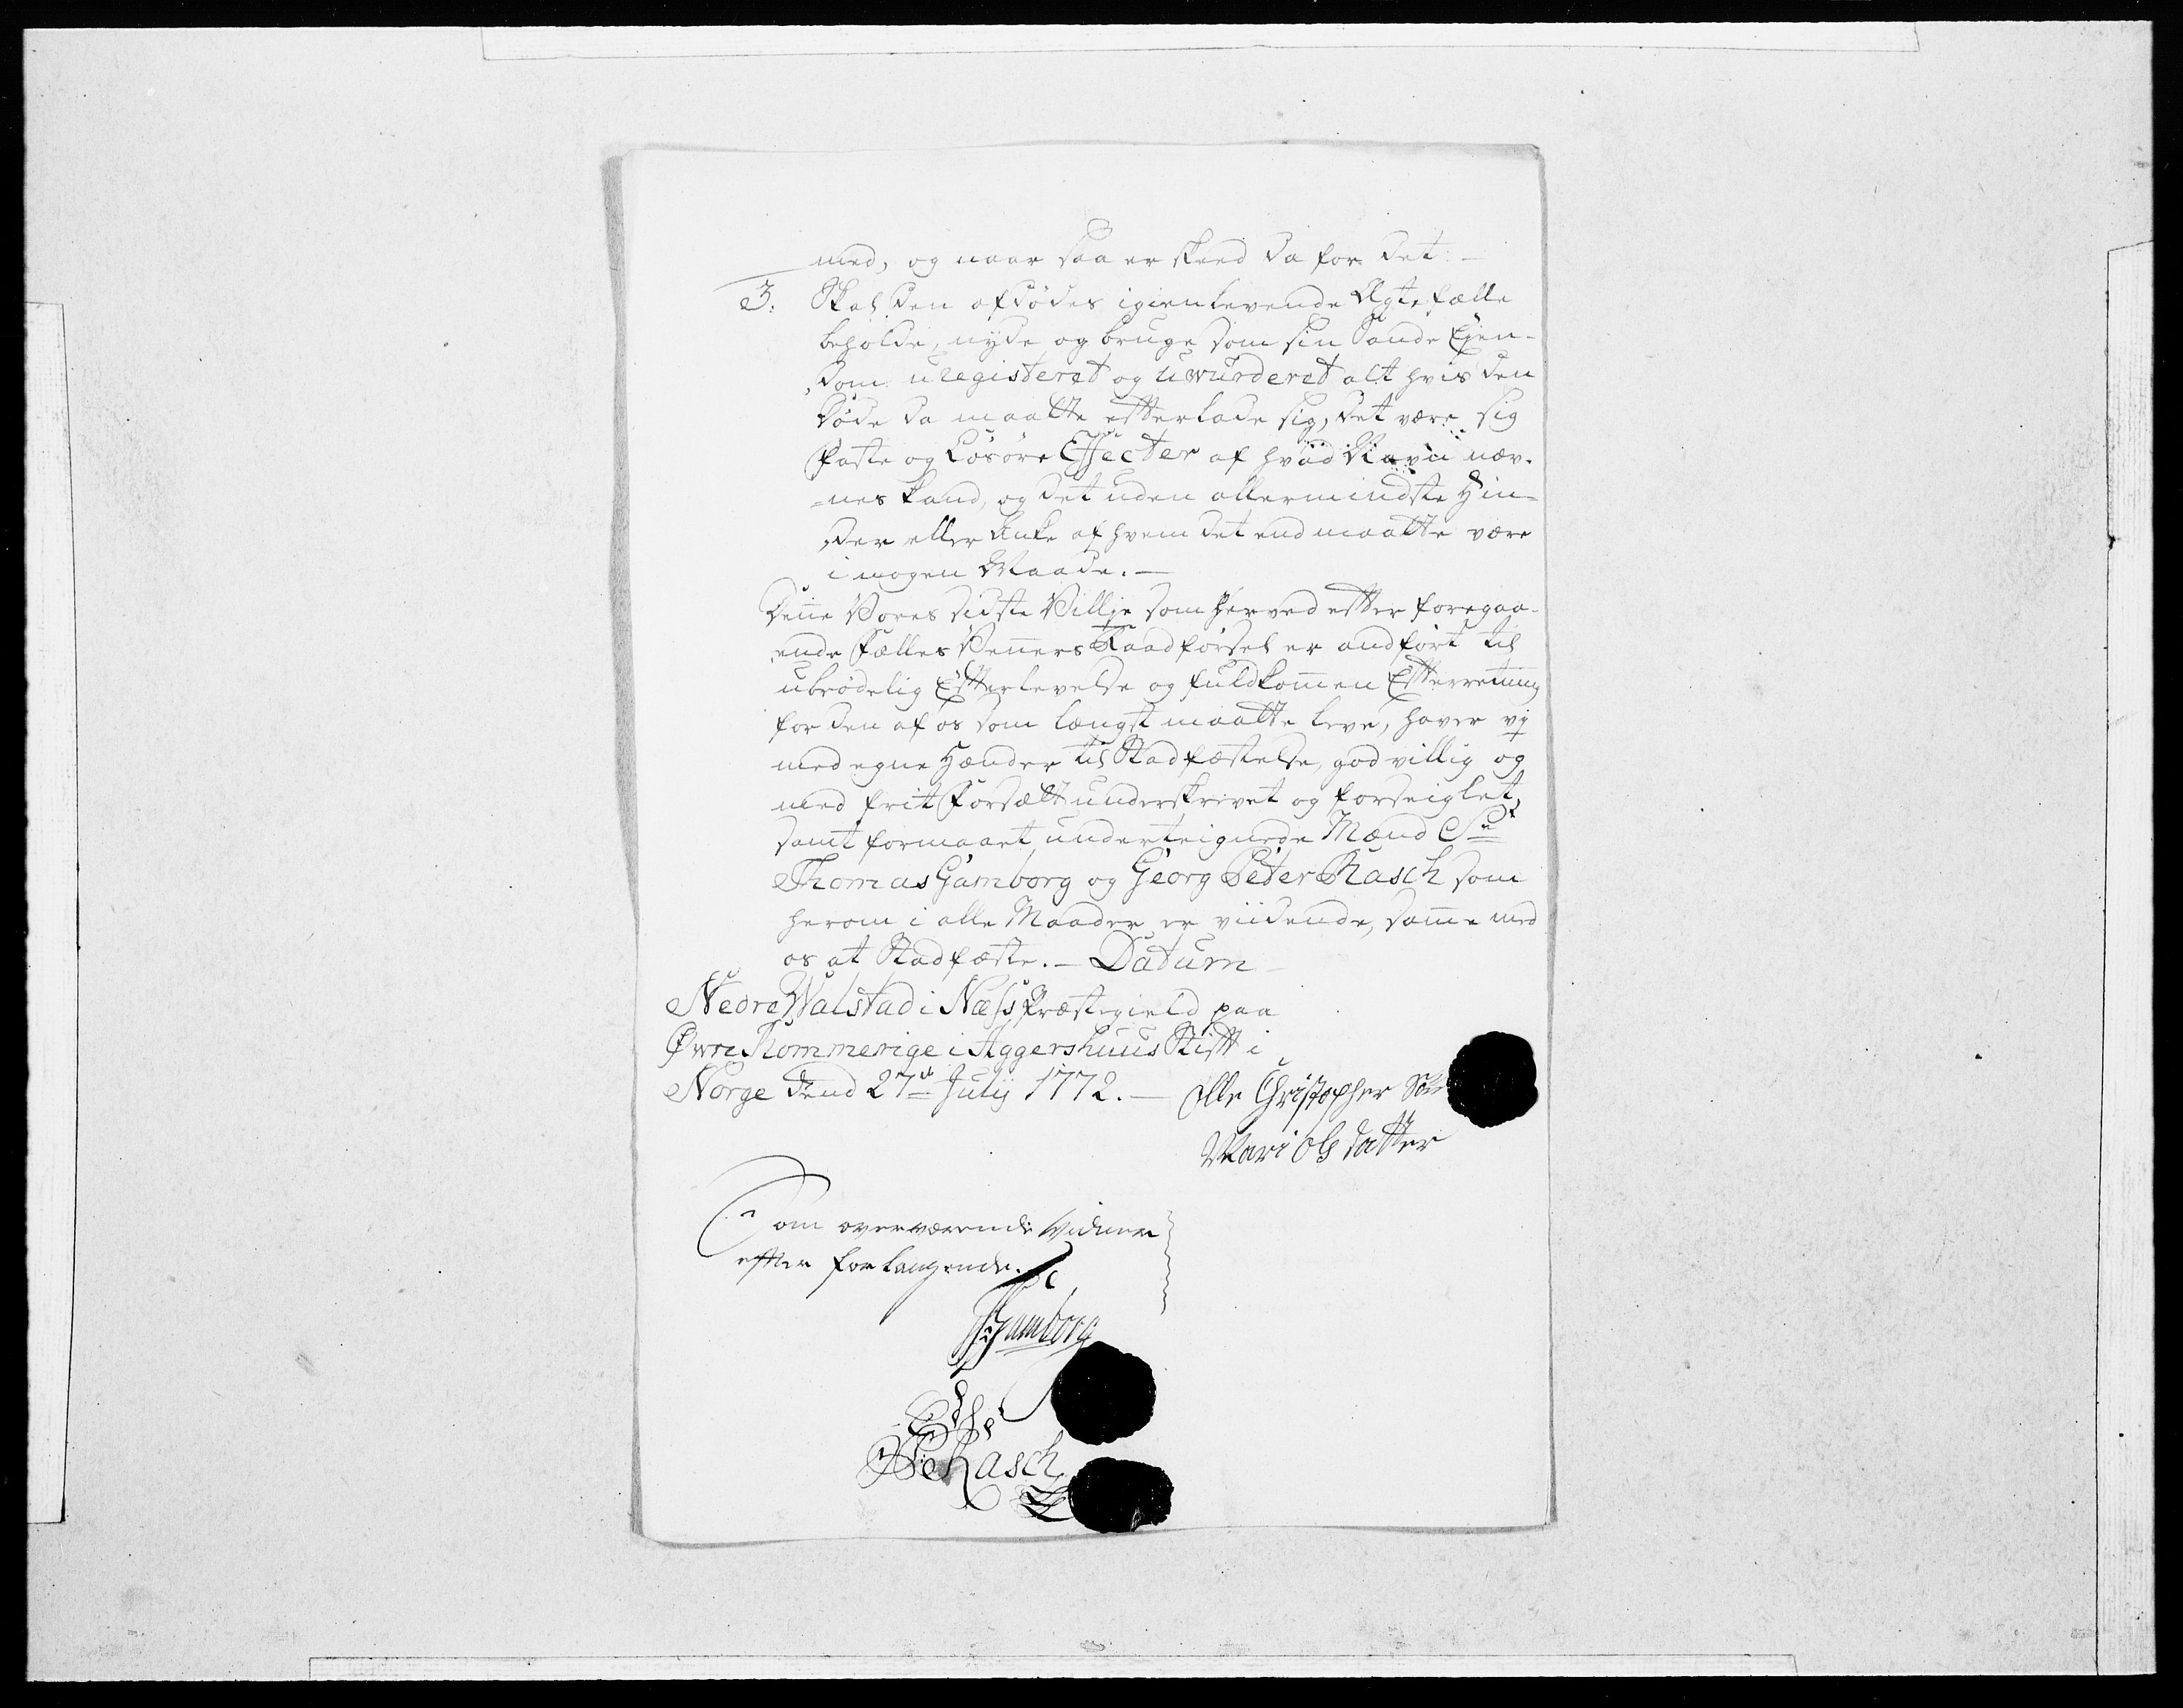 med, og naar saa er skeed da for det:
3. Skal den afdødes igienlevende Ægtefælle
beholde, nyde og bruge som sin Sande Ejen-
dom uregisteret og uwurderet alt hvis den
Døde da maatte efterlade sig, det være sig
Faste og Løsøre Effecter af hvad Navn næv-
nes kand, og det uden allermindste Hin-
der eller Anke af hvem det end maatte være
i nogen Maade.
Denne Vores sidste Villje som herved efter foregaa-
ende Fælles Venners Raadførsel er andført til
ubrødelig Efterlevelse og fuldkommen Efterretning
for den af os som længst maatte leve, haver vj
med egne Hænder til Stadfæstelse, god villig og
med frit Forsætt underskrevet og forseiglet,
samt formaaet underteignede Mænd Sr
Thomas Gamborg og Georg Peter Rasch som
herom i alle Maader er viidende, samme med
os at Stadfæste. — Datum
Nedre Walstad i Næss Præstegield paa
Øwre Rommerige i Aggershuus Stift i
Norge dend 27de Julij 1772. — Olle Christopher Søn
Mari Ols datter
Som overværende Vidner
efter forlangende.
Gamborg
Rasch